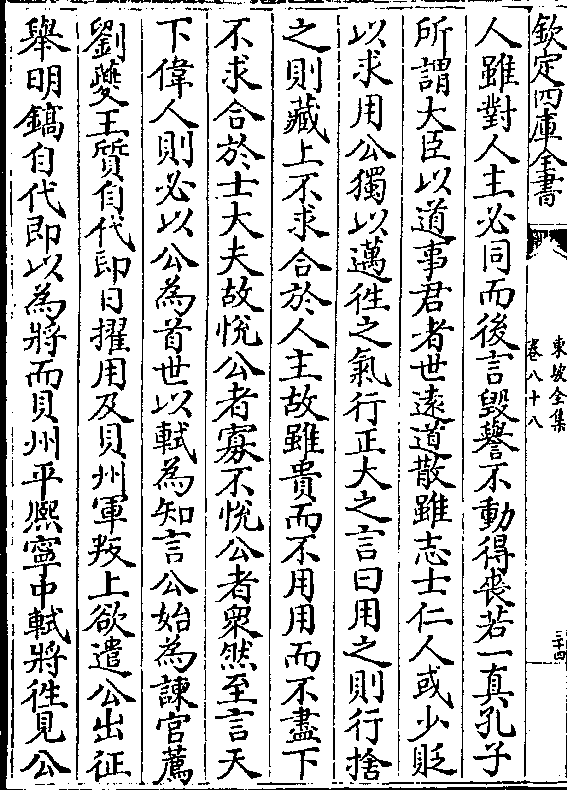 欽定四庫全書
東坡全集
卷八十八
三十四
人雖對人主必同而後言毀譽不動得喪若一真孔子
所謂大臣以道事君者世逺道散雖志士仁人或少貶
以求用公獨以邁徃之氣行正大之言曰用之則行捨
之則藏上不求合於人主故雖貴而不用用而不盡下
不求合於士大夫故悅公者寡不悅公者衆然至言天
下偉人則必以公為首世以軾為知言公始為諫官薦
劉夔王質自代即日擢用及貝州軍叛上欲遣公出征
舉明鎬自代即以為將而貝州平熈寧中軾將徃見公